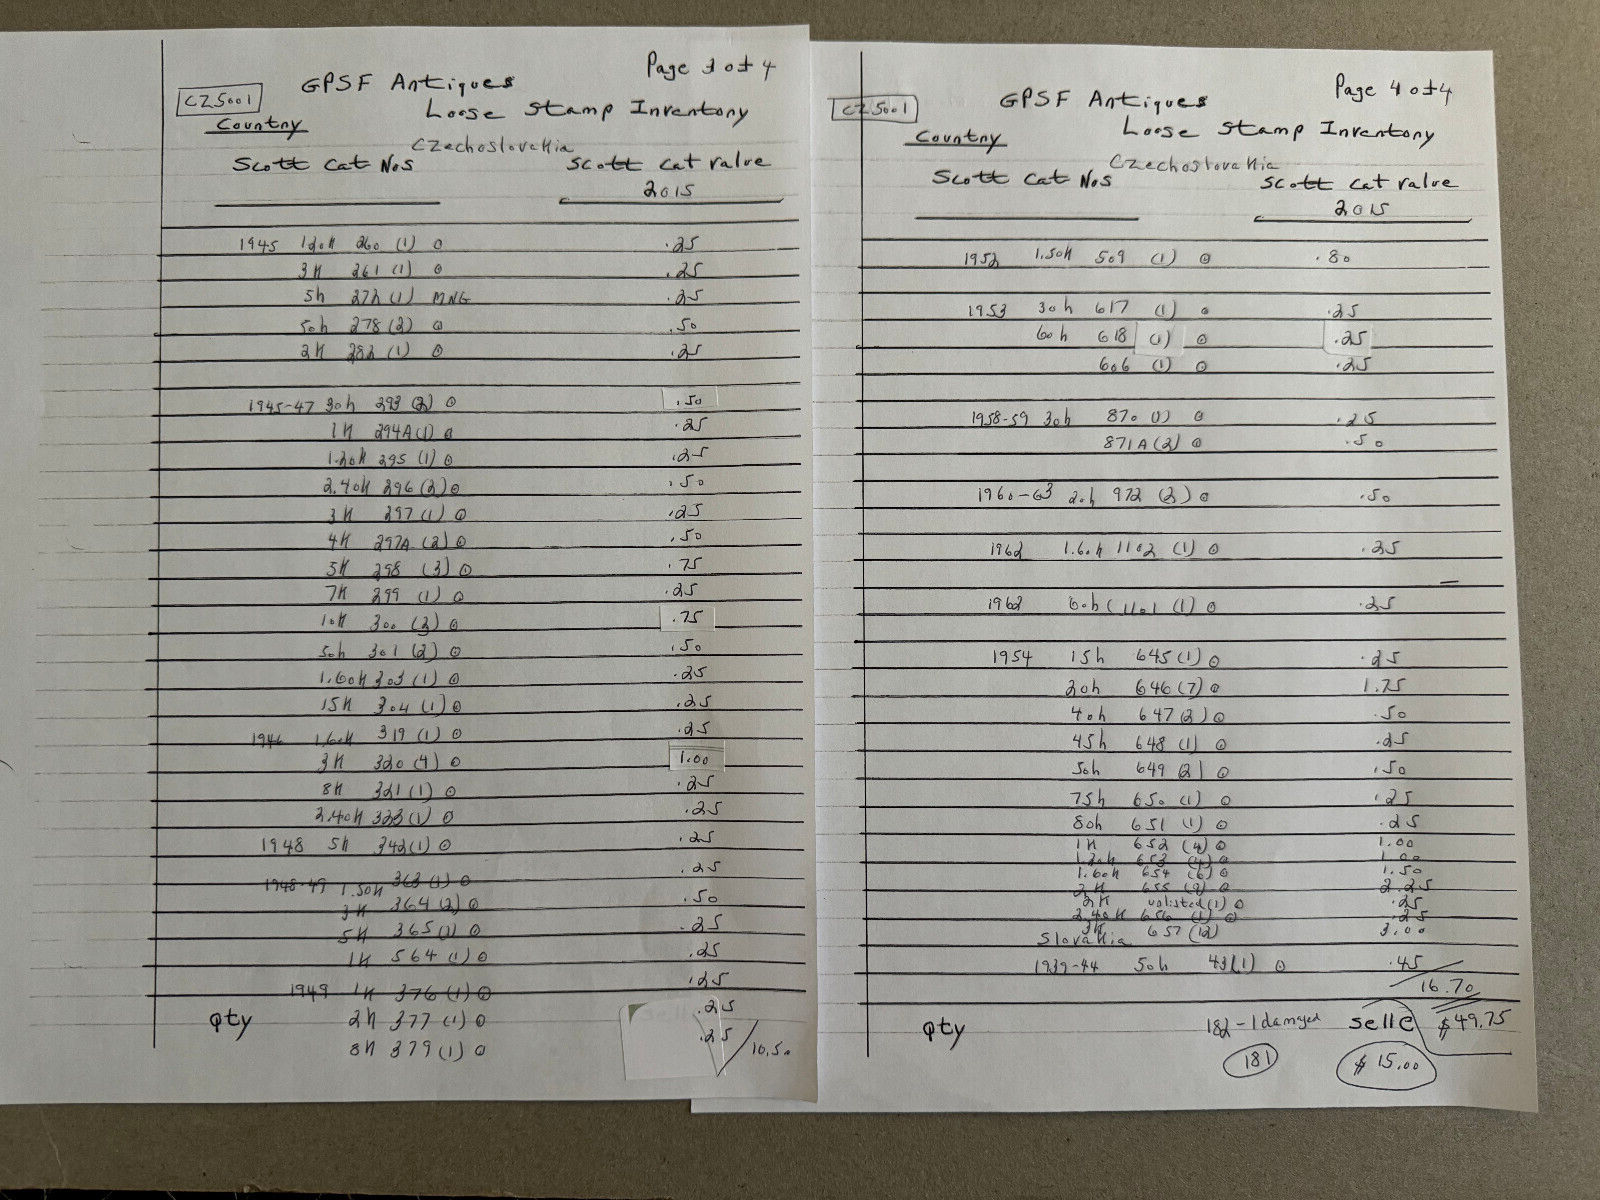 Page 3 of 4
CZS001
GPSF Antiques
Loose Stamp Inventory
Country
Czechoslovakia
Scott Cat Nos
Scott Cat Value
2015
1945 1.20K 260 (1) ⊙ .25
3K 261 (1) ⊙ .25
5h 272 (1) MNG .25
50h 278 (2) ⊙ .50
2K 282 (1) ⊙ .25
1945-47 30h 293 (2) ⊙ .50
1K 294A (1) ⊙ .25
1.20K 295 (1) ⊙ .25
2.40K 296 (2) ⊙ .50
3K 297 (1) ⊙ .25
4K 297A (2) ⊙ .50
5K 298 (3) ⊙ .75
7K 299 (1) ⊙ .25
10K 300 (3) ⊙ .75
50h 301 (2) ⊙ .50
1.60K 303 (1) ⊙ .25
15K 304 (1) ⊙ .25
1946 1.60K 319 (1) ⊙ .25
3K 320 (4) ⊙ 1.00
8K 321 (1) ⊙ .25
2.40K 323 (1) ⊙ .25
1948 5K 342 (1) ⊙ .25
1948-49 1.50K 363 (1) ⊙ .25
3K 364 (2) ⊙ .50
5K 365 (1) ⊙ .25
1K 564 (1) ⊙ .25
1949 1K 376 (1) ⊙ .25
2K 377 (1) ⊙ .25
8K 379 (1) ⊙ .25
10.50
Qty
Page 4 of 4
CZS001
GPSF Antiques
Loose Stamp Inventory
Country
Czechoslovakia
Scott Cat Nos
Scott Cat Value
2015
1952 1.50K 509 (1) ⊙ .80
1953 30h 617 (1) ⊙ .25
60h 618 (1) ⊙ .25
606 (1) ⊙ .25
1958-59 30h 870 (1) ⊙ .25
871A (2) ⊙ .50
1960-63 20h 972 (2) ⊙ .50
1962 1.60K 1102 (1) ⊙ .25
1962 60h 1101 (1) ⊙ .25
1954 15h 645 (1) ⊙ .25
20h 646 (7) ⊙ 1.75
40h 647 (2) ⊙ .50
45h 648 (1) ⊙ .25
50h 649 (2) ⊙ .50
75h 650 (1) ⊙ .25
80h 651 (1) ⊙ .25
1K 652 (4) ⊙ 1.00
1.20K 653 (4) ⊙ 1.00
1.60K 654 (6) ⊙ 1.50
2K 655 (9) ⊙ 2.25
2K unlisted (1) ⊙ .25
2.40K 656 (1) ⊙ .25
3K 657 (12) 3.00
Slovakia
1939-44 50h 43 (1) ⊙ .45
16.70
Qty
182-1 damaged
Selle
$49.75
181
$15.00